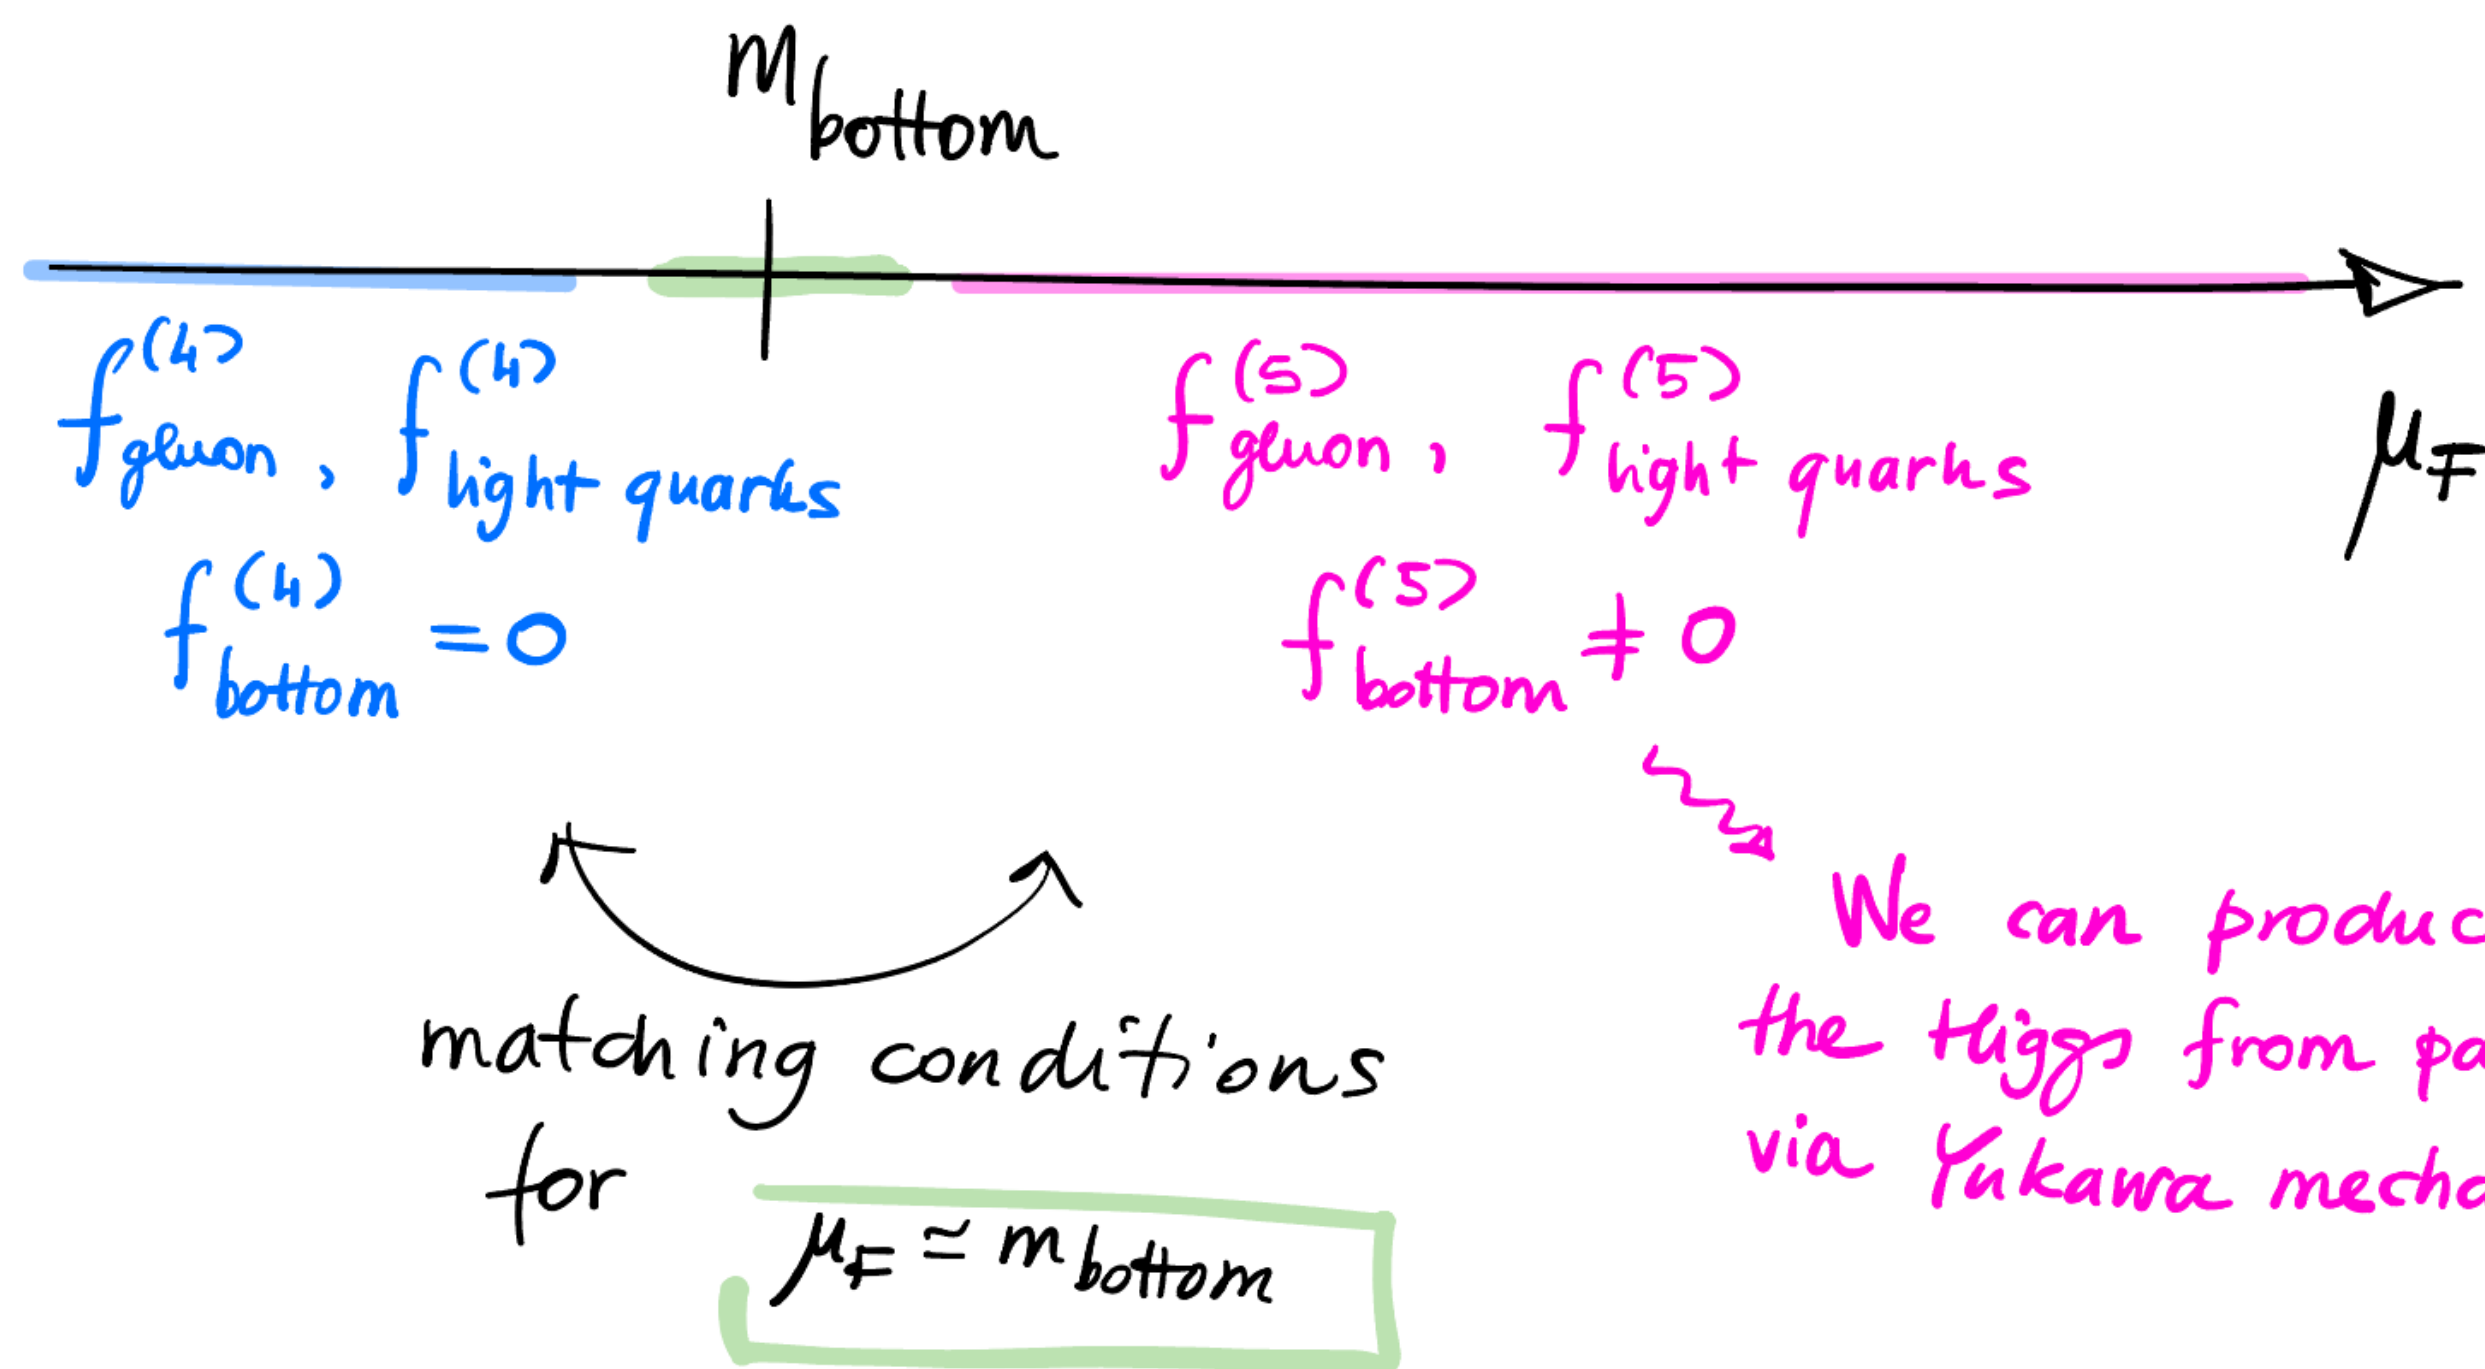 m_bottom
f^(4)_gluon , f^(4)_light quarks
f^(5)_gluon , f^(5)_light quarks
μ_F
f^(4)_bottom = 0
f^(5)_bottom ≠ 0
We can produc
the Higgs from pa
via Yukawa mecha
matching conditions
for μ_F ≃ m_bottom